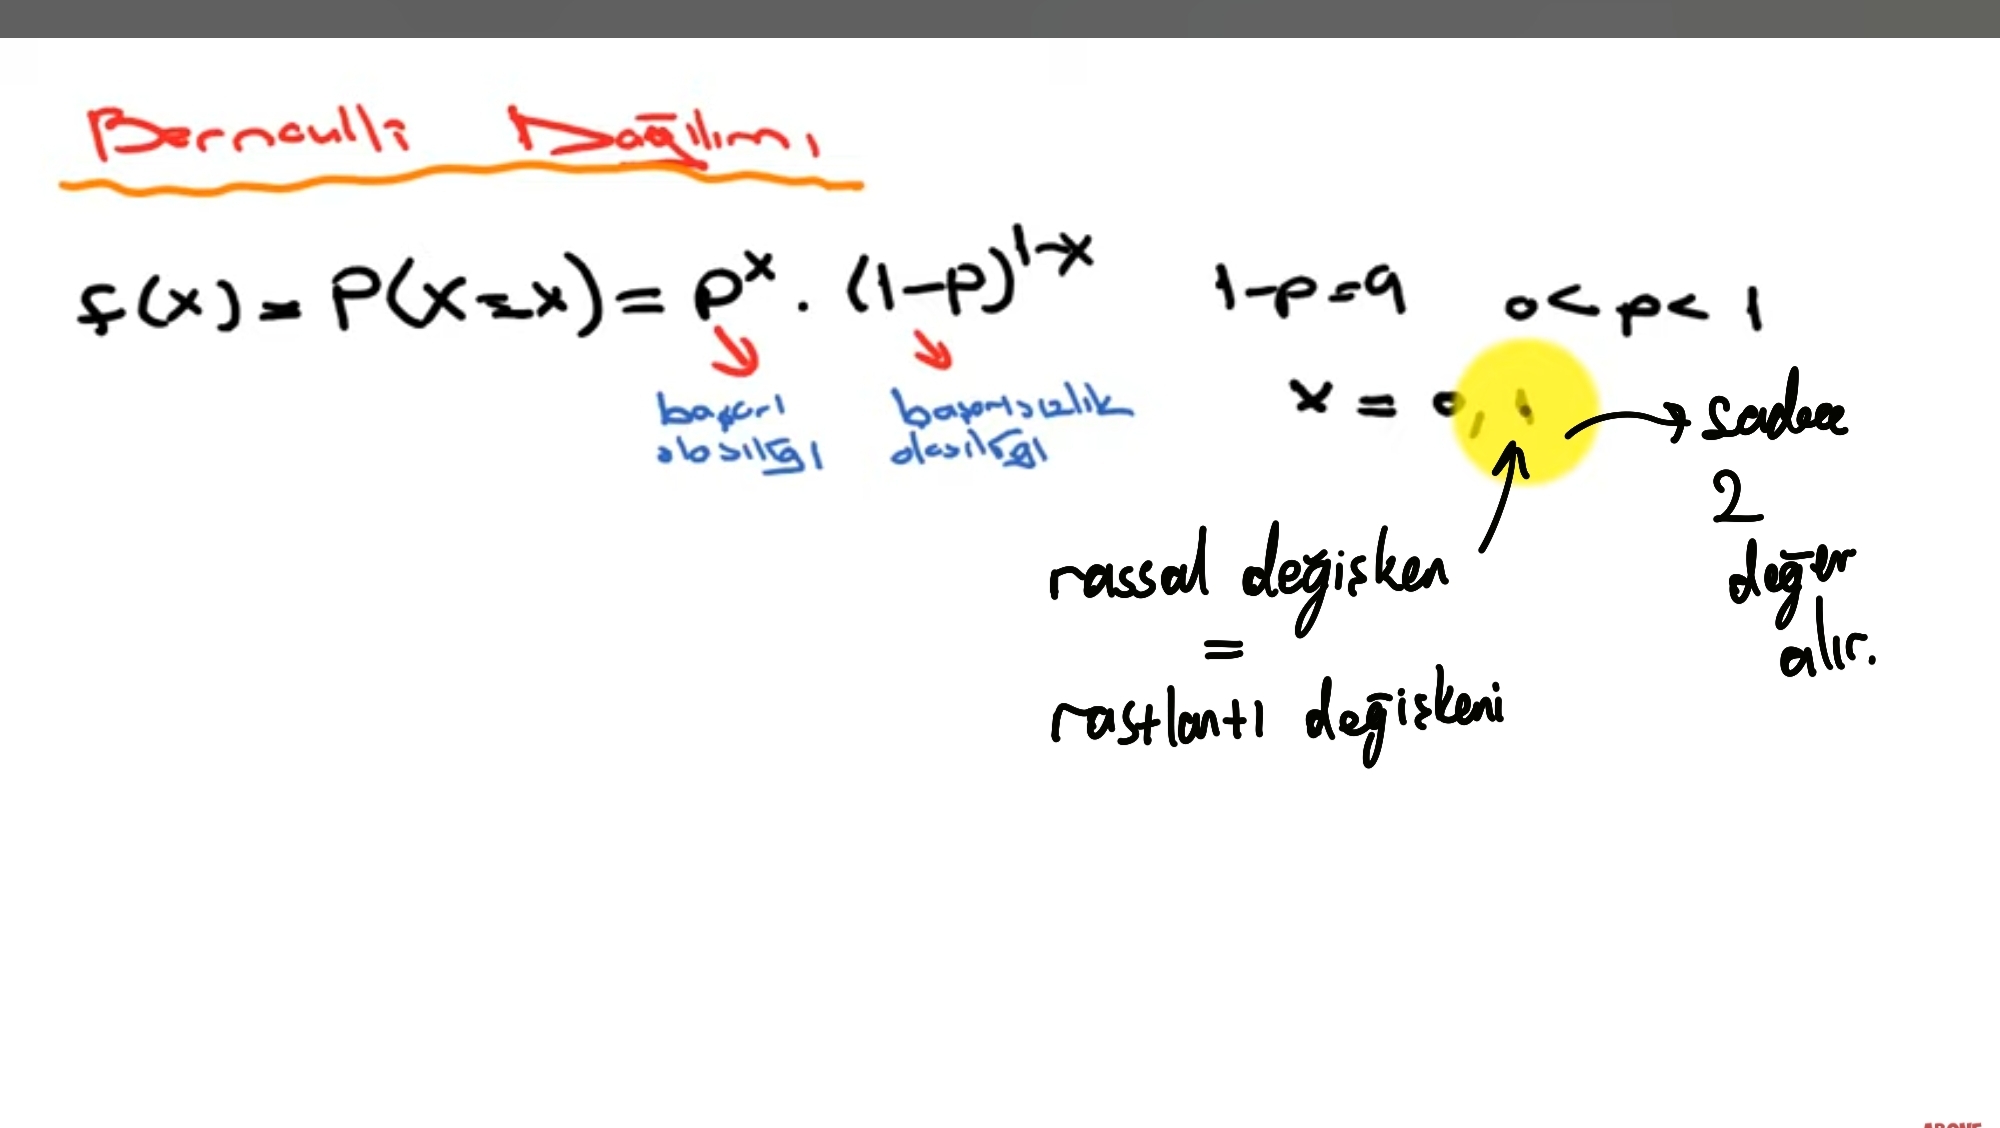 Bernoulli Dağılımı
f(x) = P(X=x) = p^x . (1-p)^1-x
1-p=q
0<p<1
başarı
olasılığı
başarısızlık
olasılığı
x = 0, 1
sadece
2
değer
alır.
rassal değişken
=
rastlantı değişkeni
ABOVE